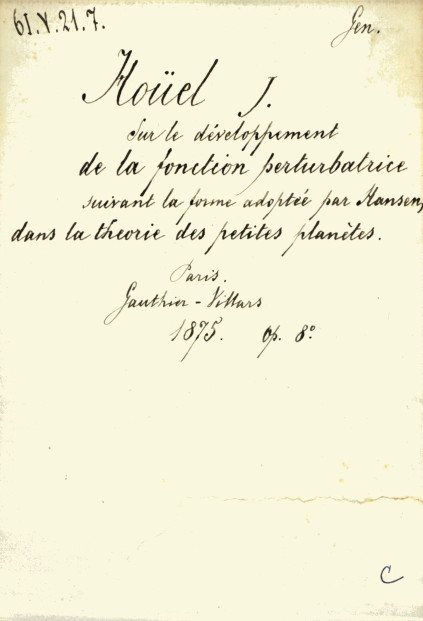 6I.V.21.7.
Gen.
Hoüel J.
Sur le développement
de la fonction perturbatrice
suivant la forme adoptée par Hansen,
dans la theorie des petites planètes.
Paris.
Gauthier-Villars
1875. Op. 8°
C